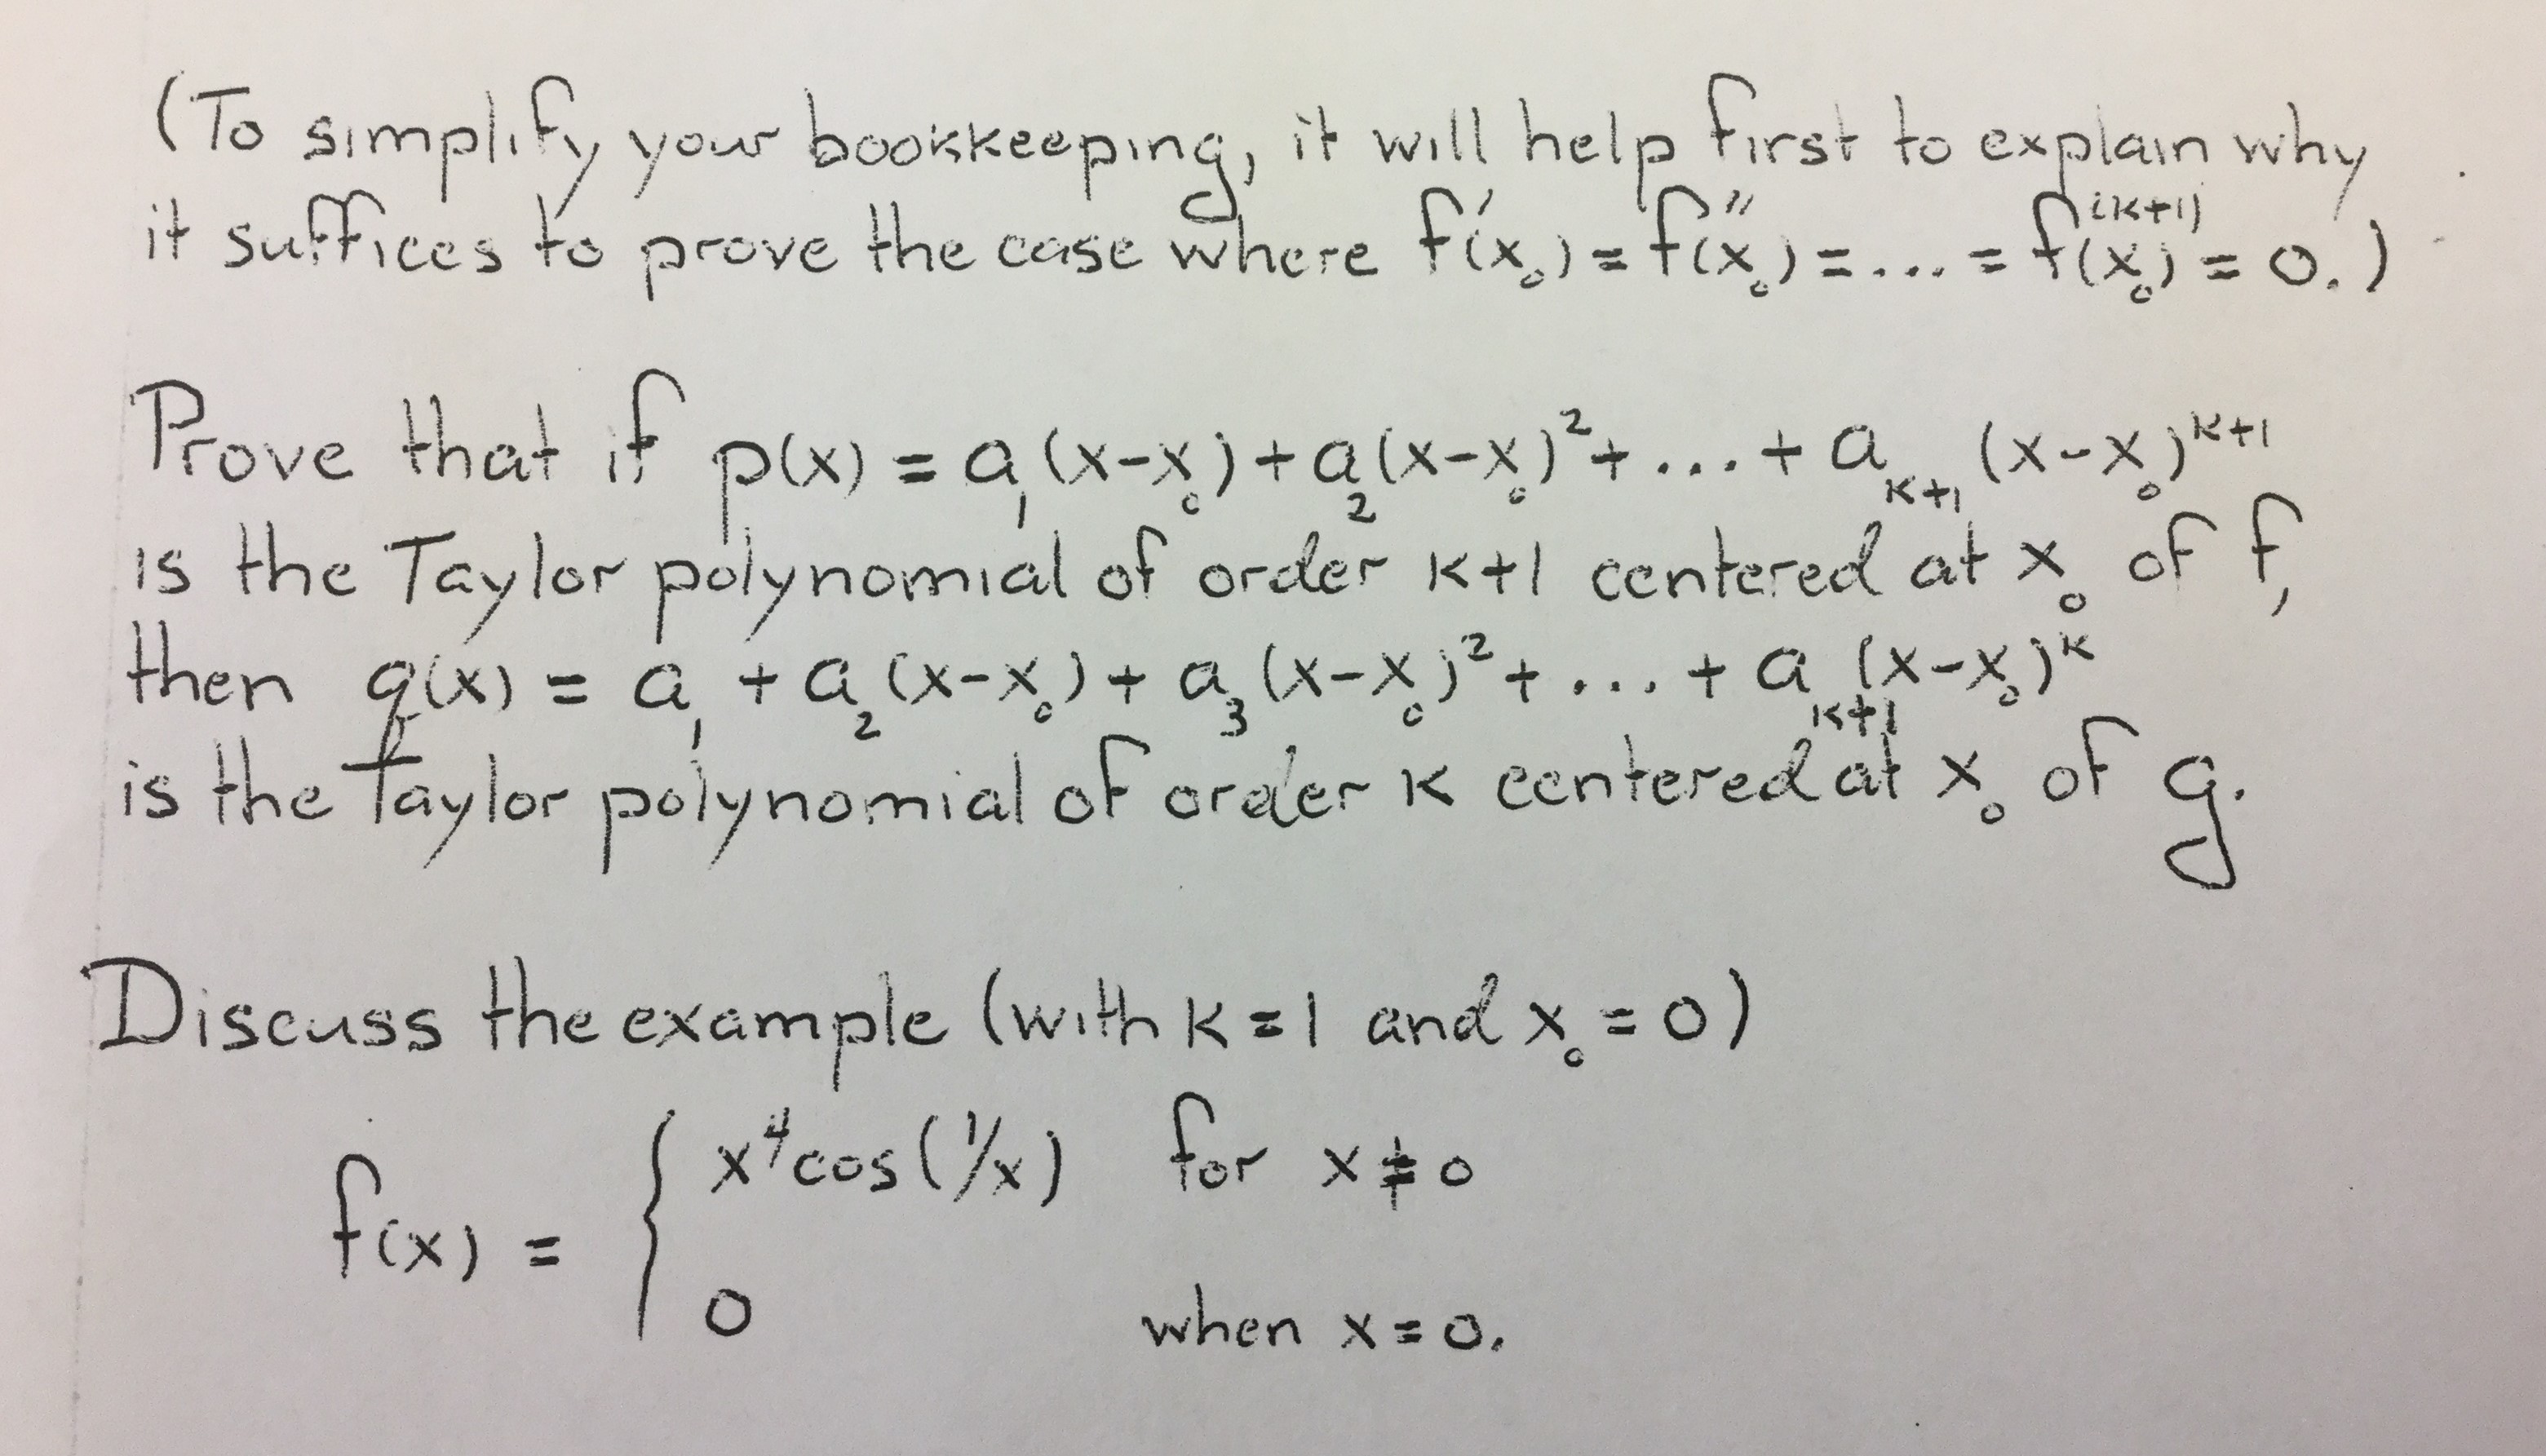 (To simplify your bookkeeping, it will help first to explain why
it suffices to prove the case where f'(x₀) = f''(x₀) = ... = f⁽ᵏ⁺¹⁾(x₀) = 0.)
Prove that if p(x) = a₁(x-x₀) + a₂(x-x₀)² + ... + aₖ₊₁(x-x₀)ᵏ⁺¹
is the Taylor polynomial of order k+1 centered at x₀ of f,
then q(x) = a₁ + a₂(x-x₀) + a₃(x-x₀)² + ... + aₖ₊₁(x-x₀)ᵏ
is the Taylor polynomial of order k centered at x₀ of g.
Discuss the example (with k=1 and x₀ = 0)
f(x) = { x⁴cos(1/x) for x ≠ 0
0 when x = 0.